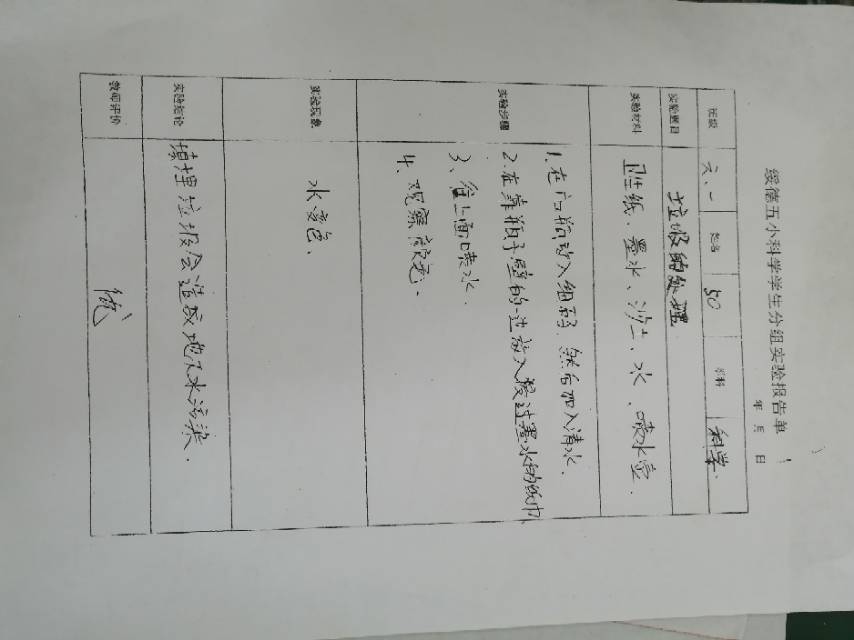 绥德五小科学学生分组实验报告单
年 月 日
班级 六、一 姓名 50 学科 科学.
实验题目 垃圾的处理
实验材料 卫生纸、墨水、沙土、水、喷水壶.
实验步骤
1、在广口瓶放入细码,然后加入清水.
2、在靠瓶子壁的一边放入浸过墨水的纸巾
3、往上面喷水.
4、观察颜色.
实验现象 水变色.
实验结论 填埋垃圾会造成地下水污染.
教师评价 优